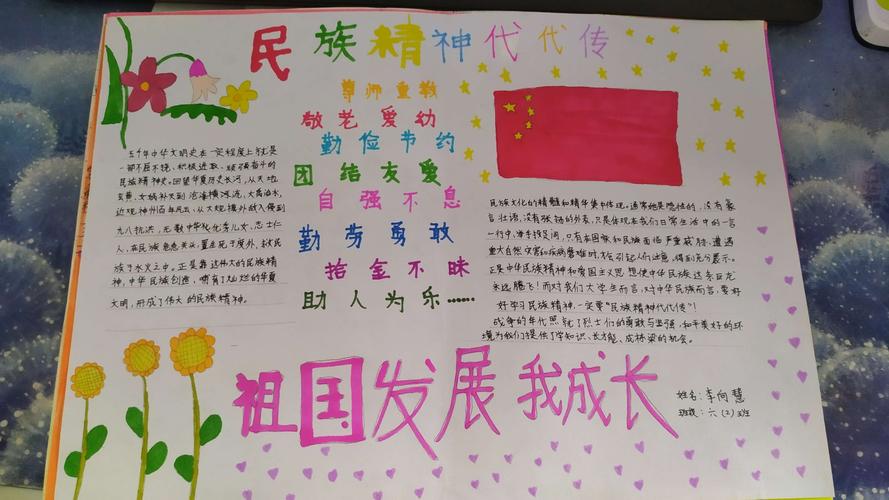 民族精神代代传
尊师重教
敬老爱幼
勤俭节约
团结友爱
自强不息
勤劳勇敢
拾金不昧
助人为乐……
五千年中华文明史在一定程度上就是
一部不屈不挠、积极进取、顽强奋斗的
民族精神史。回望华夏历史长河,从大地
玄黄、女娲补天到沧海横流,大禹治水,
近观神州百年风云,从大规模外敌入侵到
九八抗洪,无数中华优秀儿女、志士仁
人,在民族危急关头,置生死于度外,救民
族于水火之中。正是靠这伟大的民族精
神,中华民族创造,哺育了灿烂的华夏
文明,形成了伟大的民族精神。
民族文化的精髓和精华集中体现。通常她是隐性的,没有豪
言壮语,没有张扬的外表,只是体现在我们日常生活中的一言
一行中,举手投足间,只有在国家和民族面临严重威胁、遭遇
重大自然灾害和疾病磨难时,才会引起人们注意,得到充分展示。
正是中华民族精神和爱国主义思想使中华民族这条巨龙
永远腾飞!而对我们大学生而言,对中华民族而言,要好
好学习民族精神,一定要“民族精神代代传”!
战争的年代照亮了烈士们的勇敢与坚强,和平美好的环
境为我们提供了学知识、长才能、成栋梁的机会。
祖国发展我成长
姓名:李向慧
班级:六(2)班